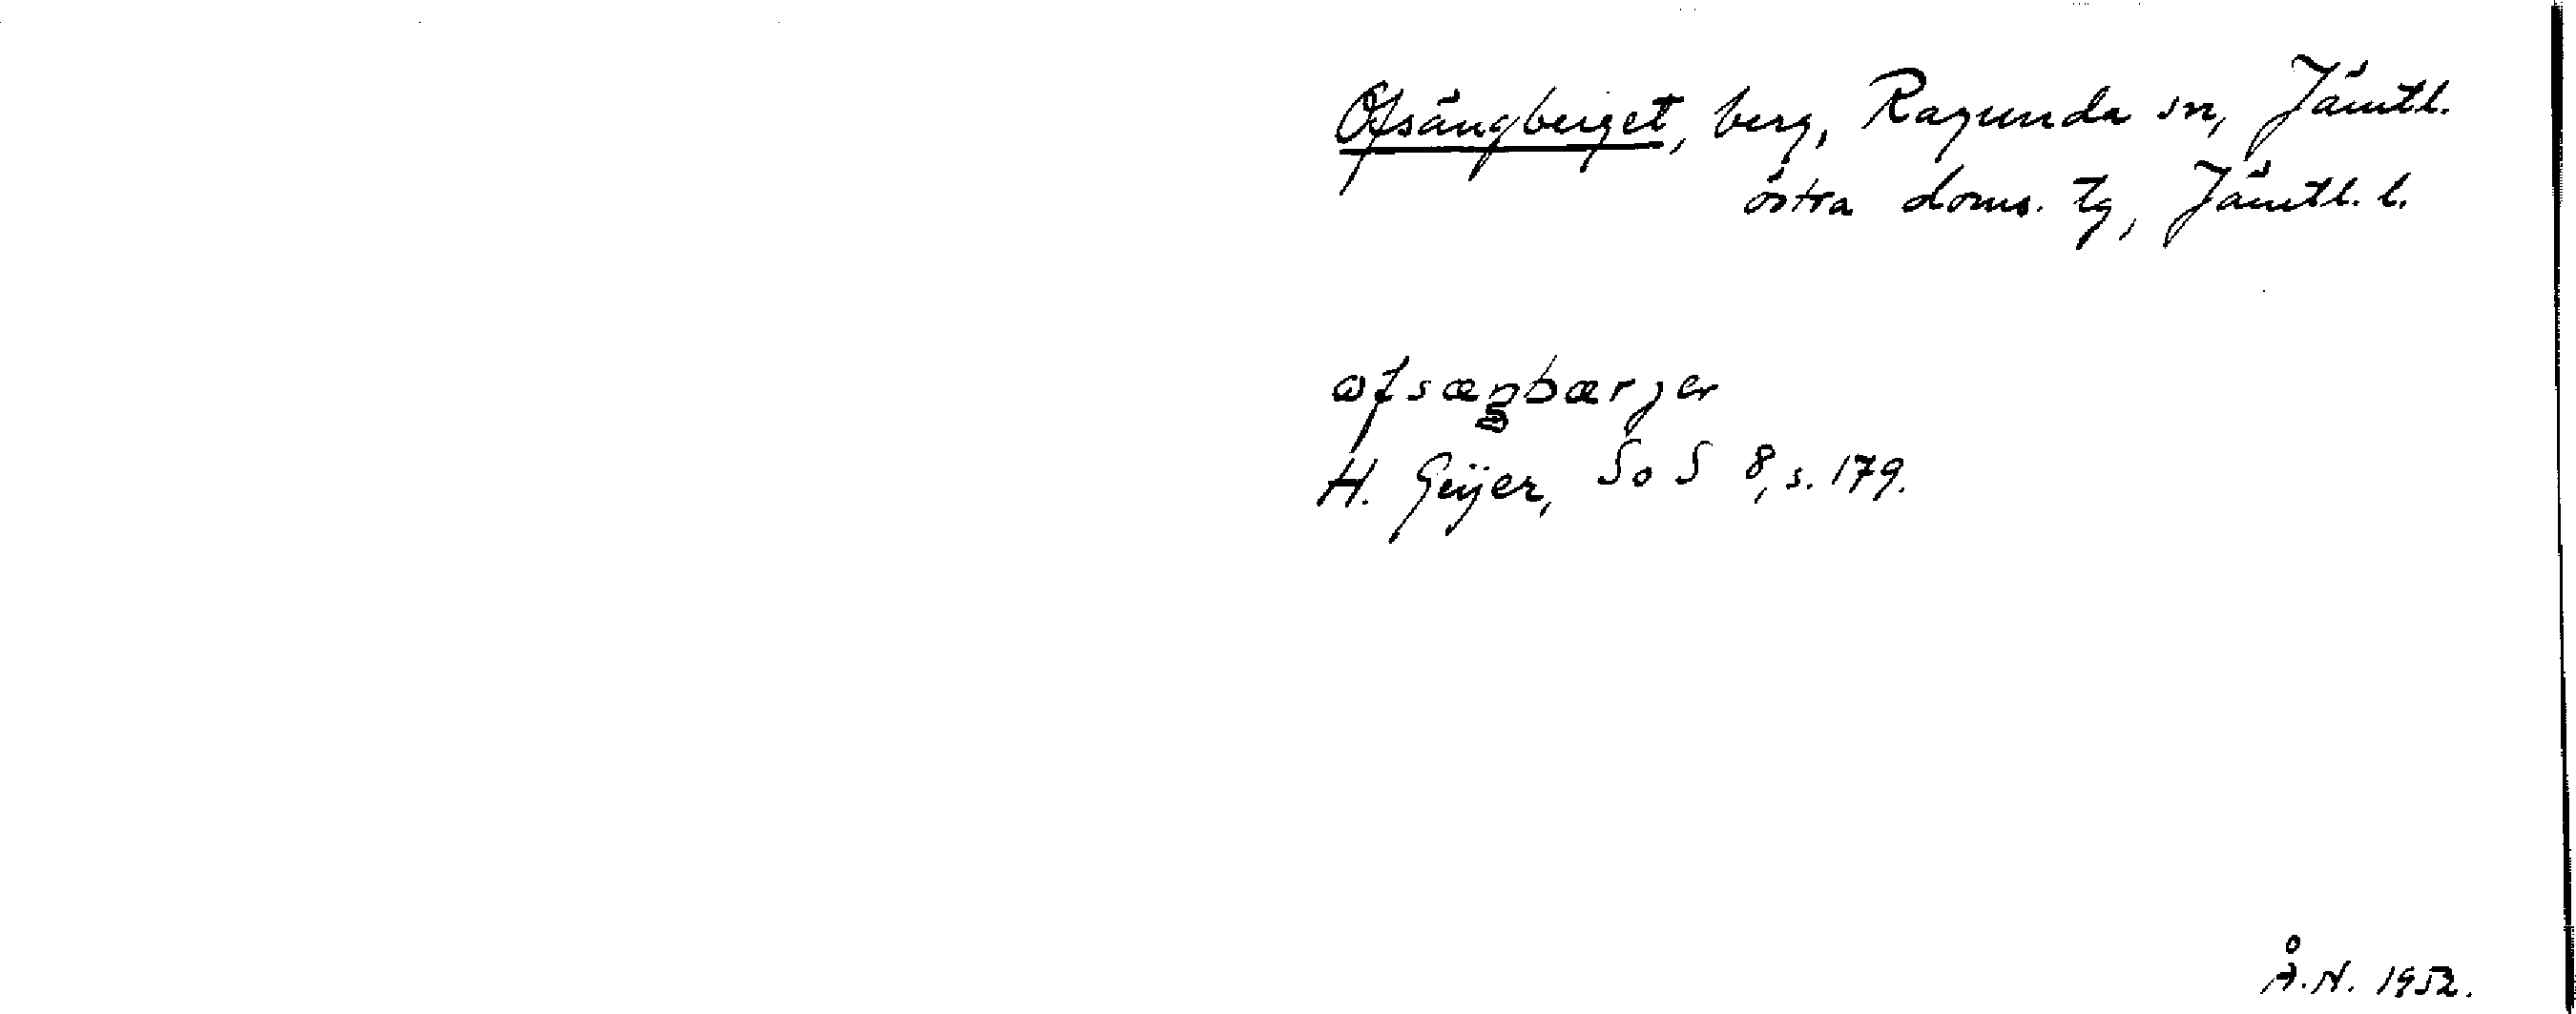 Ofsängberget, berg, Ragunda sn, Jämtl.
östra doms. tg, Jämtl. l.
H. Geijer, SoS 8, s. 179.
Å.N. 1952.